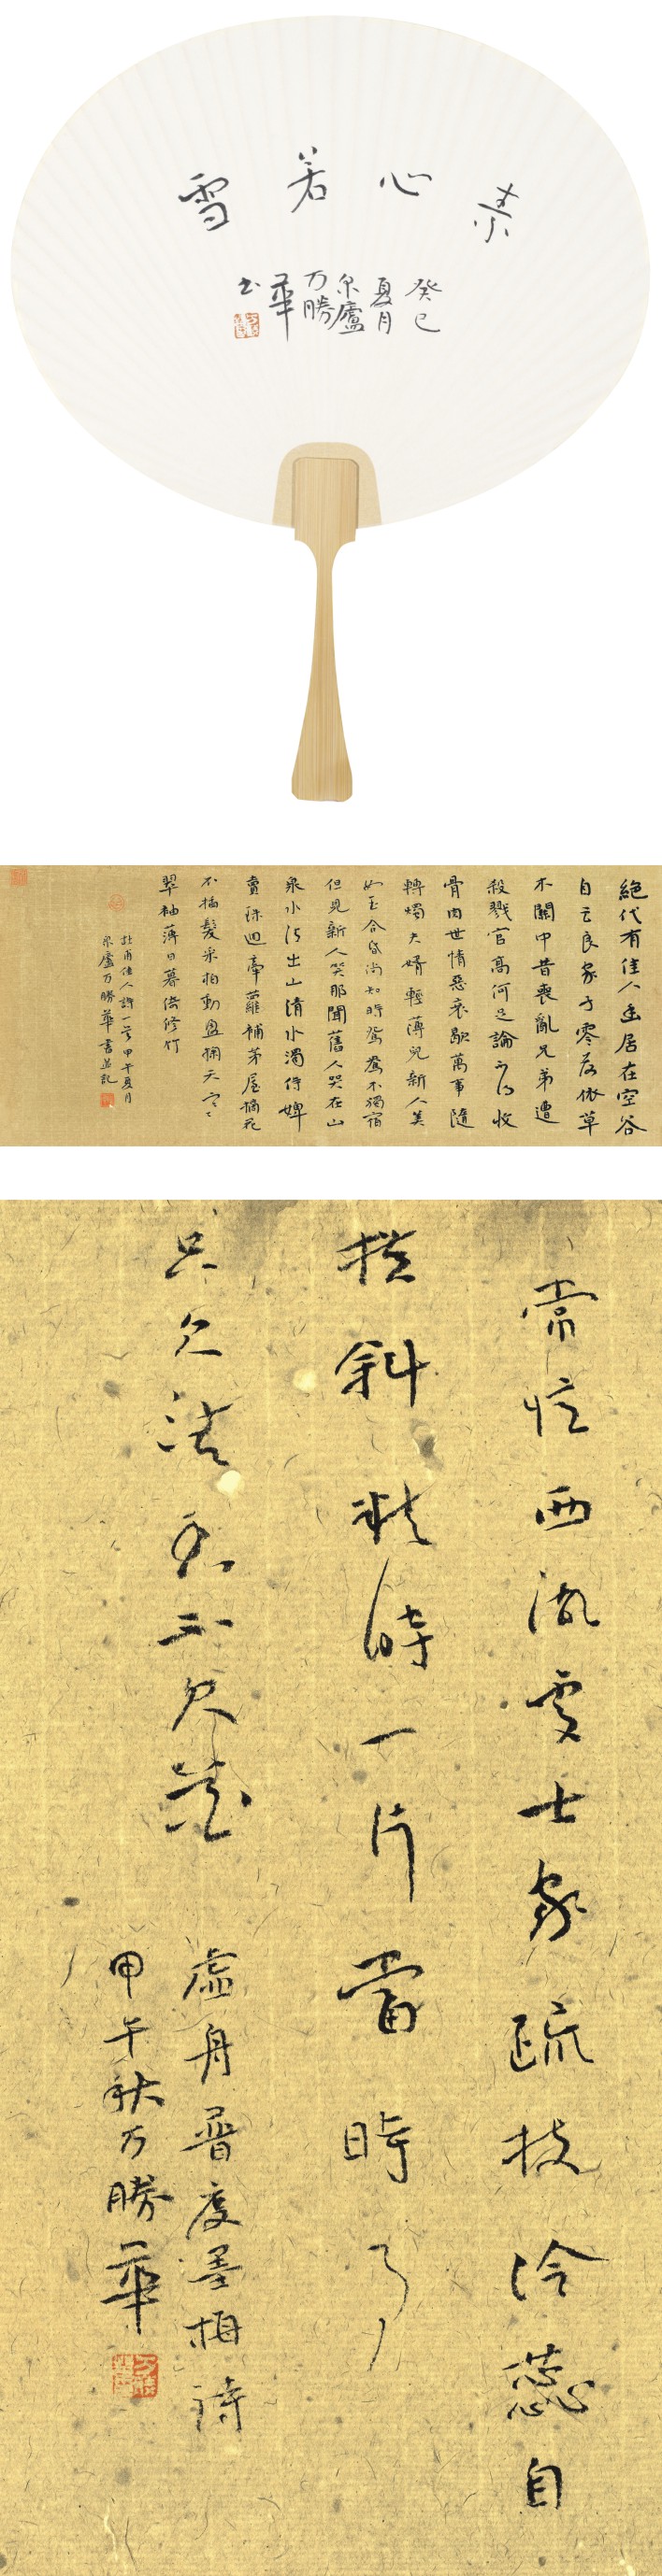 素心若雪
癸巳
夏月
泉廬
万勝
華
书
絕代有佳人幽居在空谷
自云良家子零落依草
木關中昔喪亂兄弟遭
殺戮官高何足論不得收
骨肉世情惡衰歇萬事隨
轉燭夫婿輕薄兒新人美
如玉合昏尚知時鴛鴦不獨宿
但見新人笑那聞舊人哭在山
泉水清出山清水濁侍婢
賣珠迴牽蘿補茅屋摘花
不插髮采柏動盈掬天寒
翠袖薄日暮倚修竹
杜甫佳人詩一首甲午夏月
泉廬万勝華書並記
常憶西湖處士家疏枝冷蕊自
橫斜精神一片當時事
只欠清香不欠花
虛舟普度墨梅詩
甲午秋万勝華